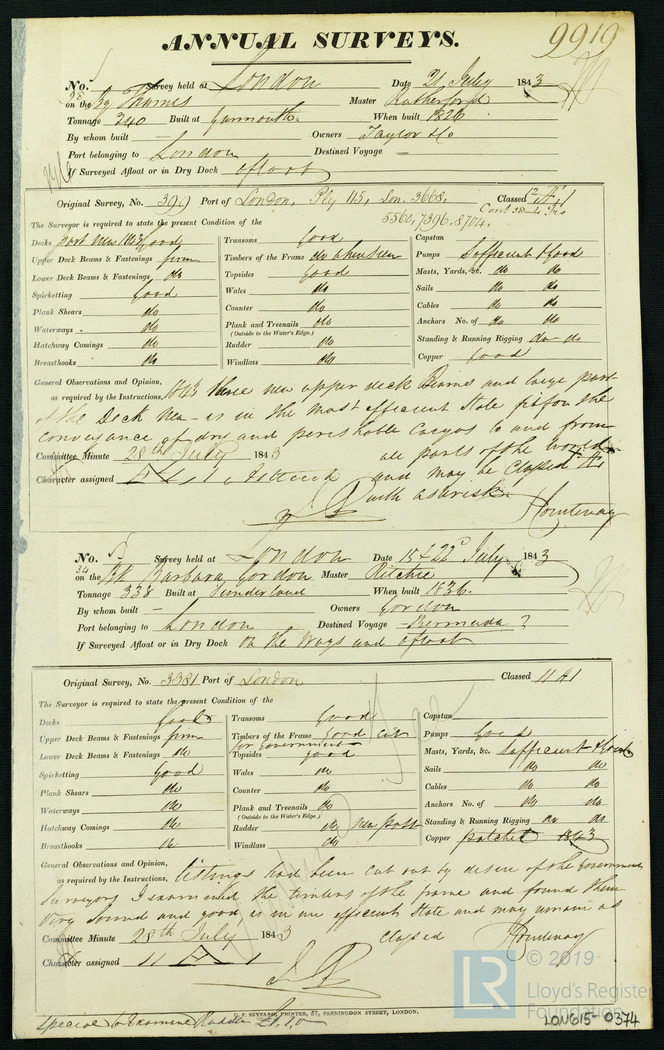 9919
ANNUAL SURVEYS.
No. Survey held at London Date 21 July 1843
on the Bg Thames Master Rutherford
Tonnage 340 Built at Yarmouth When built 1826
By whom built — Owners Taylor & Co
Port belonging to London Destined Voyage —
If Surveyed Afloat or in Dry Dock afloat
Original Survey, No. 399 Port of London, Ply 115, Lon. 3668, Classed 12 A 1
5560, 7396, 8704. Cont 38-4 Yrs
The Surveyor is required to state the present Condition of the
Decks part New 1843 good Transoms Good Capstan
Upper Deck Beams & Fastenings firm Timbers of the Frame do where seen Pumps Sufficient & Good
Lower Deck Beams & Fastenings do Topsides Good Masts, Yards, &c. do do
Spirketting Good Wales do Sails do do
Plank Shears do Counter do Cables do do
Waterways do Plank and Treenails do Anchors No. of do do
(Outside to the Water's Edge.)
Hatchway Comings do Rudder do Standing & Running Rigging do do
Breasthooks do Windlass do Copper Good
General Observations and Opinion,
as required by the Instructions, 1843 three new upper deck Beams and large part
of the Deck New - is in the most efficient State fit for the
conveyance of dry and perishable Cargos to and from
all parts of the World
Committee Minute 28th July 1843
and may be Classed Æ
Character assigned Æ 1 Asterisk with asterisk
No. Survey held at London Date 15 & 22d July 1843
34
on the Bk Barbara Gordon Master Ritchie
Tonnage 338 Built at Sunderland When built 1836.
By whom built — Owners Gordon
Port belonging to London Destined Voyage Bermuda ?
If Surveyed Afloat or in Dry Dock On the Ways and afloat
Original Survey, No. 3381 Port of London Classed 11 A 1
The Surveyor is required to state the present Condition of the
Decks Good Transoms Good Capstan
Upper Deck Beams & Fastenings firm Timbers of the Frame Good cut Pumps Good
for Government
Lower Deck Beams & Fastenings do Topsides good Masts, Yards, &c. Sufficient & Good
Spirketting Good Wales do Sails do do
Plank Shears do Counter do Cables do do
Waterways do Plank and Treenails do Anchors No. of do do
(Outside to the Water's Edge.)
Hatchway Comings do Rudder do new post Standing & Running Rigging do do
Breasthooks do Windlass do Copper patched 1843
General Observations and Opinion,
as required by the Instructions, Listings had been cut out by desire of the Government
Surveyors I examined the timbers of the frame and found them
Very Sound and good is in an efficient State and may remain as
Committee Minute 28th July 1843 Classed
Character assigned 11 A 1
G. F. SEYFANG, PRINTER, 57, FARRINGDON STREET, LONDON.
Special to Examine Rudder
© 2019
LR
Lloyd's Register
Foundation
LON615-0374